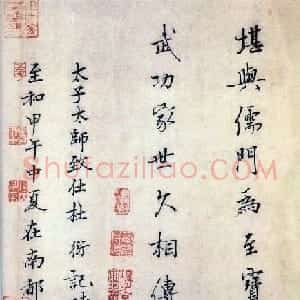 堪與儒門為至寶
武功家世久相傳
太子太師致仕杜衍記
至和甲午中夏在南都
Shufaziliao.com